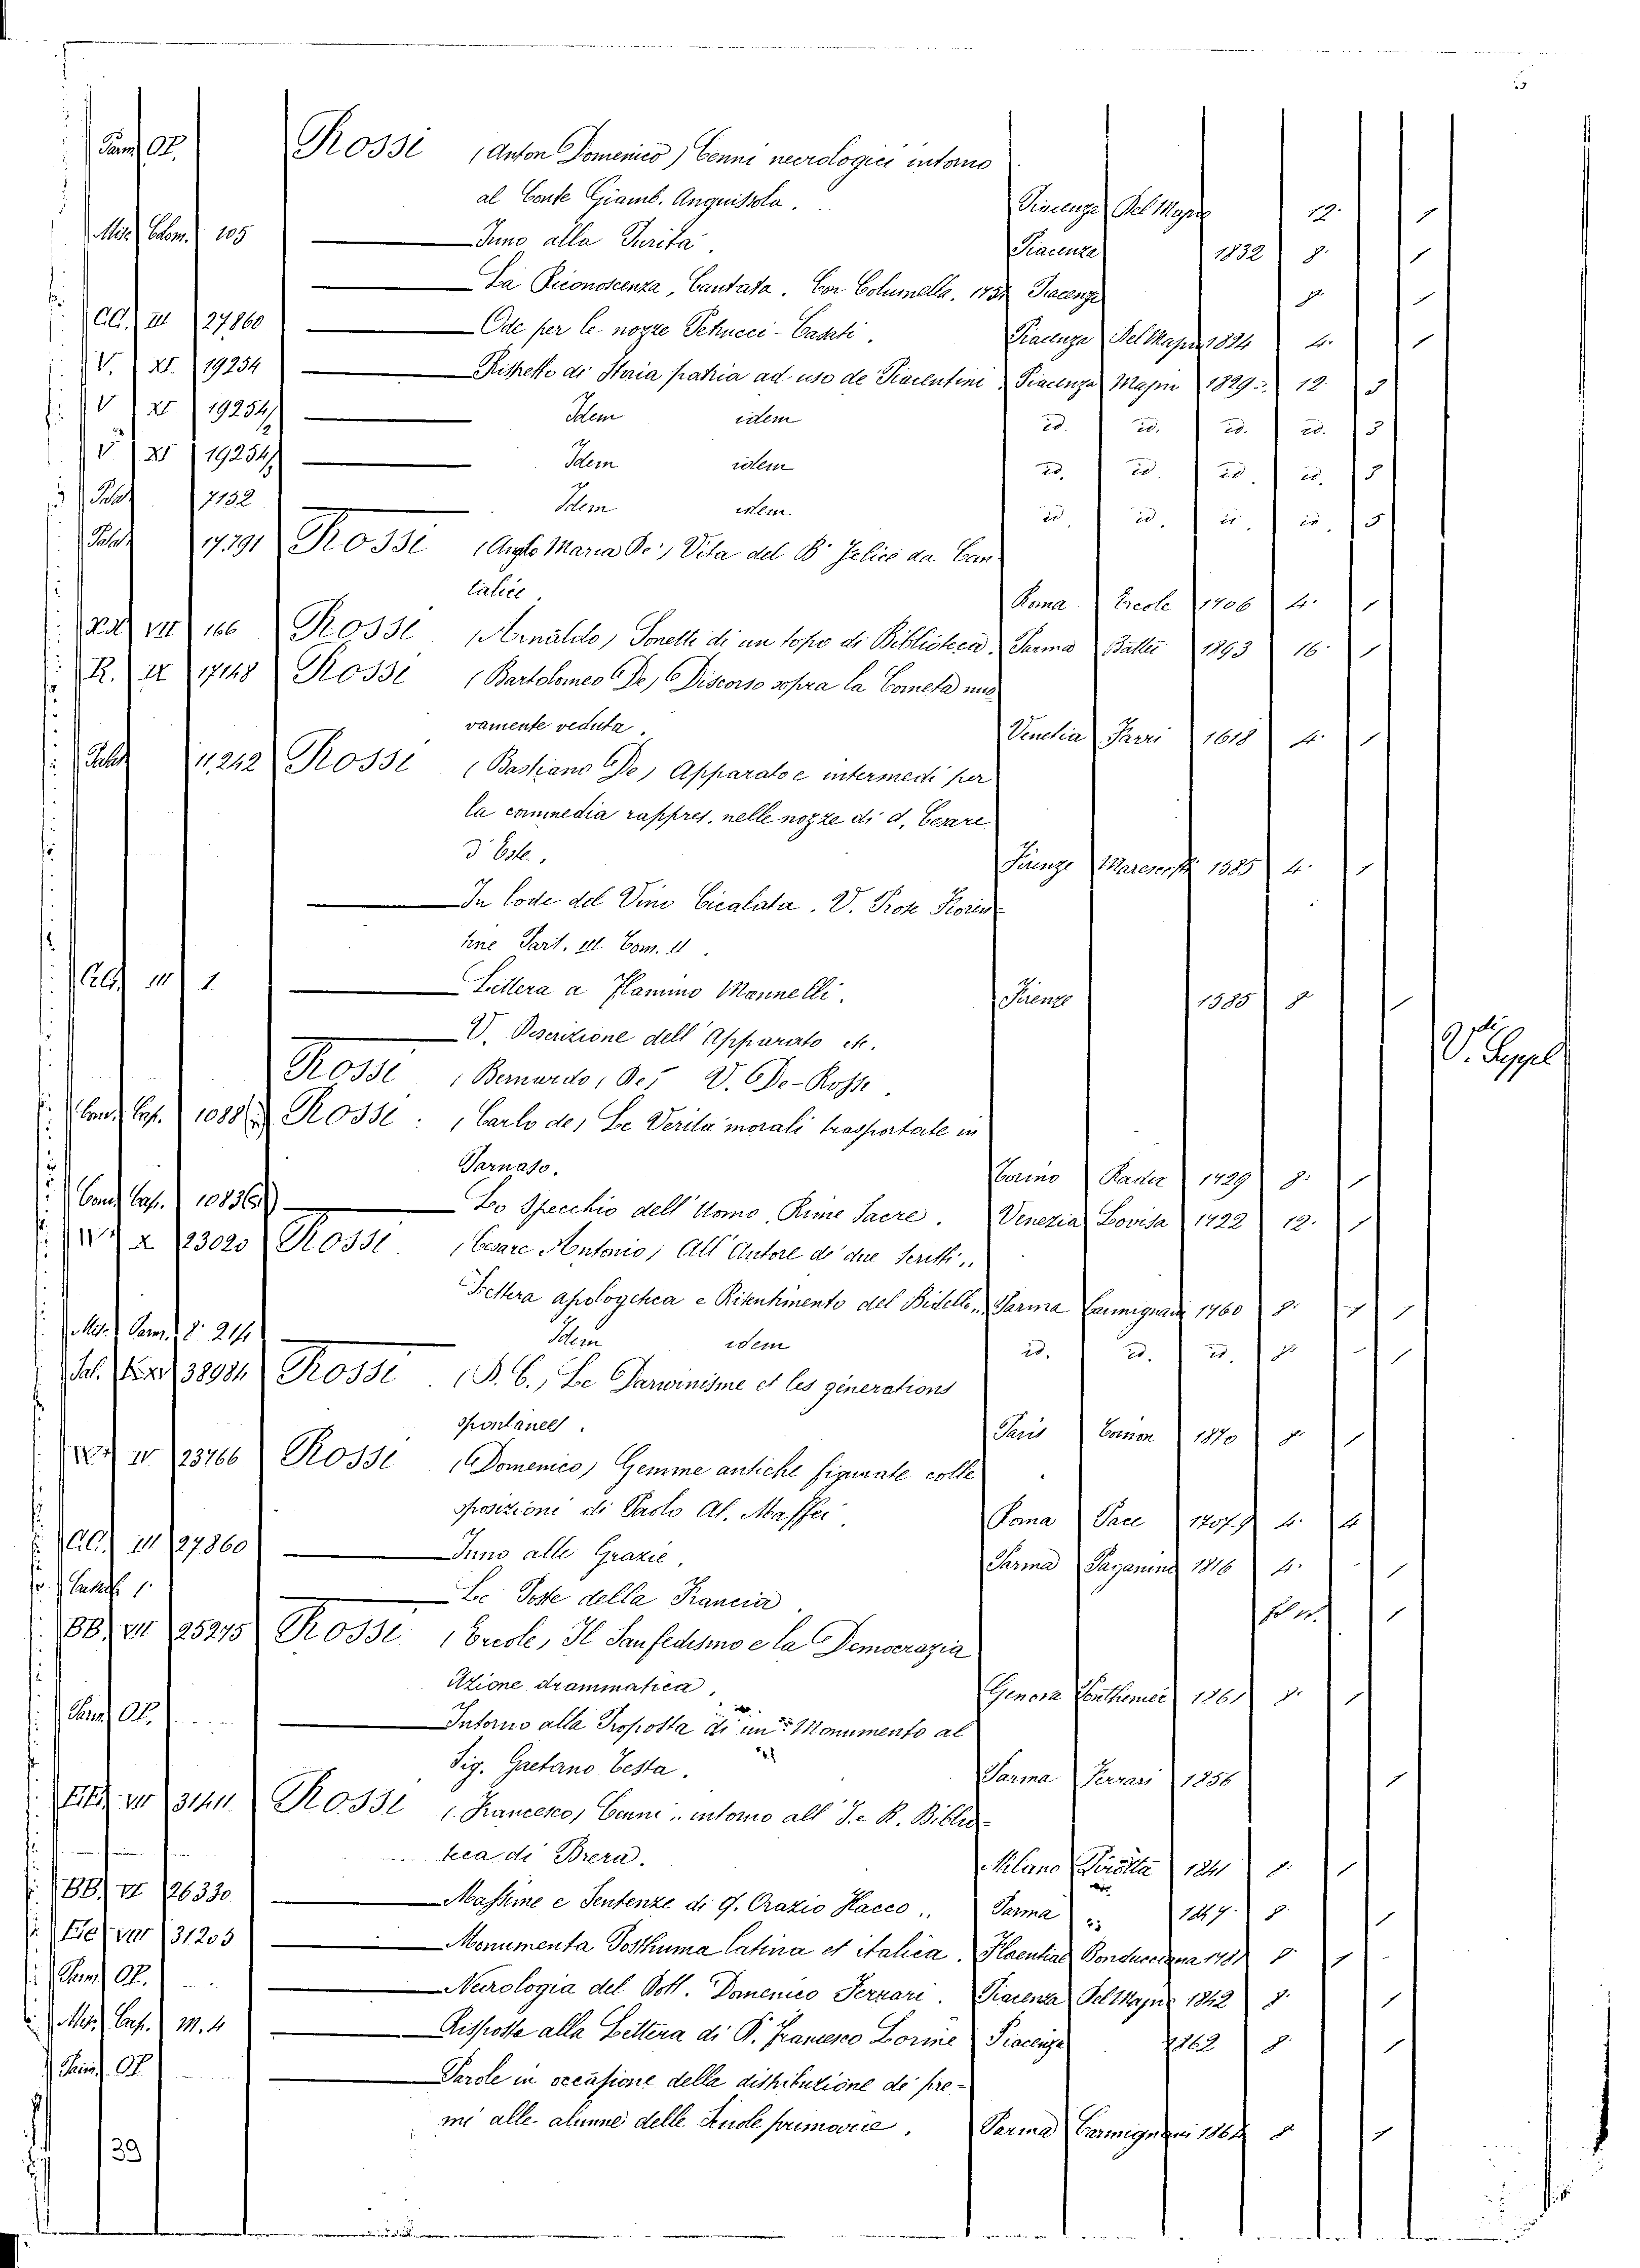 Parm. Op. Rossi (Anton Domenico) Cenni necrologici intorno
al Conte Giamb. Anguissola. Piacenza Del Majno 12. 1
Misc. Colom. 105 Inno alla Purità. Piacenza 1832 8. 1
La Riconoscenza, Cantata. Con Columella. Piacenza 8. 1
CC. III 27860 Ode per le nozze Petrucci-Casati. Piacenza Del Majno 1824 4. 1
V. XI. 19254 Ristretto di Storia patria ad uso de Piacentini Piacenza Majno 1829 12 5
V XI 19254/2 Idem idem id. id. id. id. 5
V XI 19254/3 Idem idem id. id. id. id. 5
Palat. 7152 Idem idem id. id. id. id. 5
Palat. 17.791 Rossi (Angelo Maria De) Vita del B. Felice da Can-
talice. Roma Ercole 1706 4. 1
VII 166 Rossi (Arnaldo) Sonetti di un topo di Biblioteca. Parma Battei 1893 16. 1
R. IX 17148 Rossi (Bartolomeo De) Discorso sopra la Cometa nuo
vamente veduta. Venetia Sarzi 1618 4. 1
Palat. 11,242 Rossi (Bastiano De) Apparato e intermedi per
la commedia rappres. nelle nozze di d. Cesare
d'Este. Firenze Marescotti 1585 4. 1
In lode del Vino Cicalata. V. Prose Fioren-
tine Part. III. Tom. II.
III 1. Lettera a Flaminio Mannelli. Firenze 1585 8 1
V. Descrizione dell'Apparato etc.
Rossi (Bernardo, De) V. De-Rossi.
Cond. Cas. 1088 Rossi (Carlo de) Le Verità morali trasportate in
Parnaso. Torino Radix 1729 8. 1
Cond. Cas. 10836 Lo Specchio dell'Uomo, Rime Sacre. Venezia Lovisa 1722 12. 1
X 23020 Rossi (Cesare Antonio) All'Autore di due scritti..
Lettera apologetica e Risentimento del Bidello.. Parma Carmignani 1760 8. 1
Misc. Parm. 8. 214 Idem idem id. id. id. 8. 1
Sal. 38984 Rossi (D. C.) Le Darwinisme et les générations
spontanées. Paris 1870 8 1
IV 23766 Rossi (Domenico) Gemme antiche figurate colle
sposizioni di Paolo Al. Maffei. Roma Pace 1707-9 4. 4
CC. III 27860 Inno alle Grazie. Parma Paganino 1816 4. 1
1. Le Poste della Francia. fol. 1
BB. VII 25275 Rossi (Ercole) Il Sanfedismo e la Democrazia
Azione drammatica. Genova Ponthenier 1861 8. 1
Parm. Op. Intorno alla Proposta di un Monumento al
Sig. Gaetano Testa. Parma Ferrari 1856 1
VII 31411 Rossi (Francesco) Cenni.. intorno all'I. e R. Biblio-
teca di Brera. Milano Pirotta 1841 8. 1
BB. VI 26330 Massime e Sentenze di Q. Orazio Flacco.. Parma 1847. 8. 1
Ee VIII 31203 Monumenta Posthuma latina et italica. Placentiae Bonducciana 1781 8 1
Parm. Op. Necrologia del Dott. Domenico Ferrari. Piacenza Del Majno 1842 8. 1
Misc. Cas. M. 4 Risposta alla Lettera di P. Francesco Piacenza 1862 8. 1
Parm. Op. Parole in occasione della distribuzione de' pre-
mi alle alunne delle Scuole primarie. Parma Carmignani 1864 8 1
V. Seppel
39